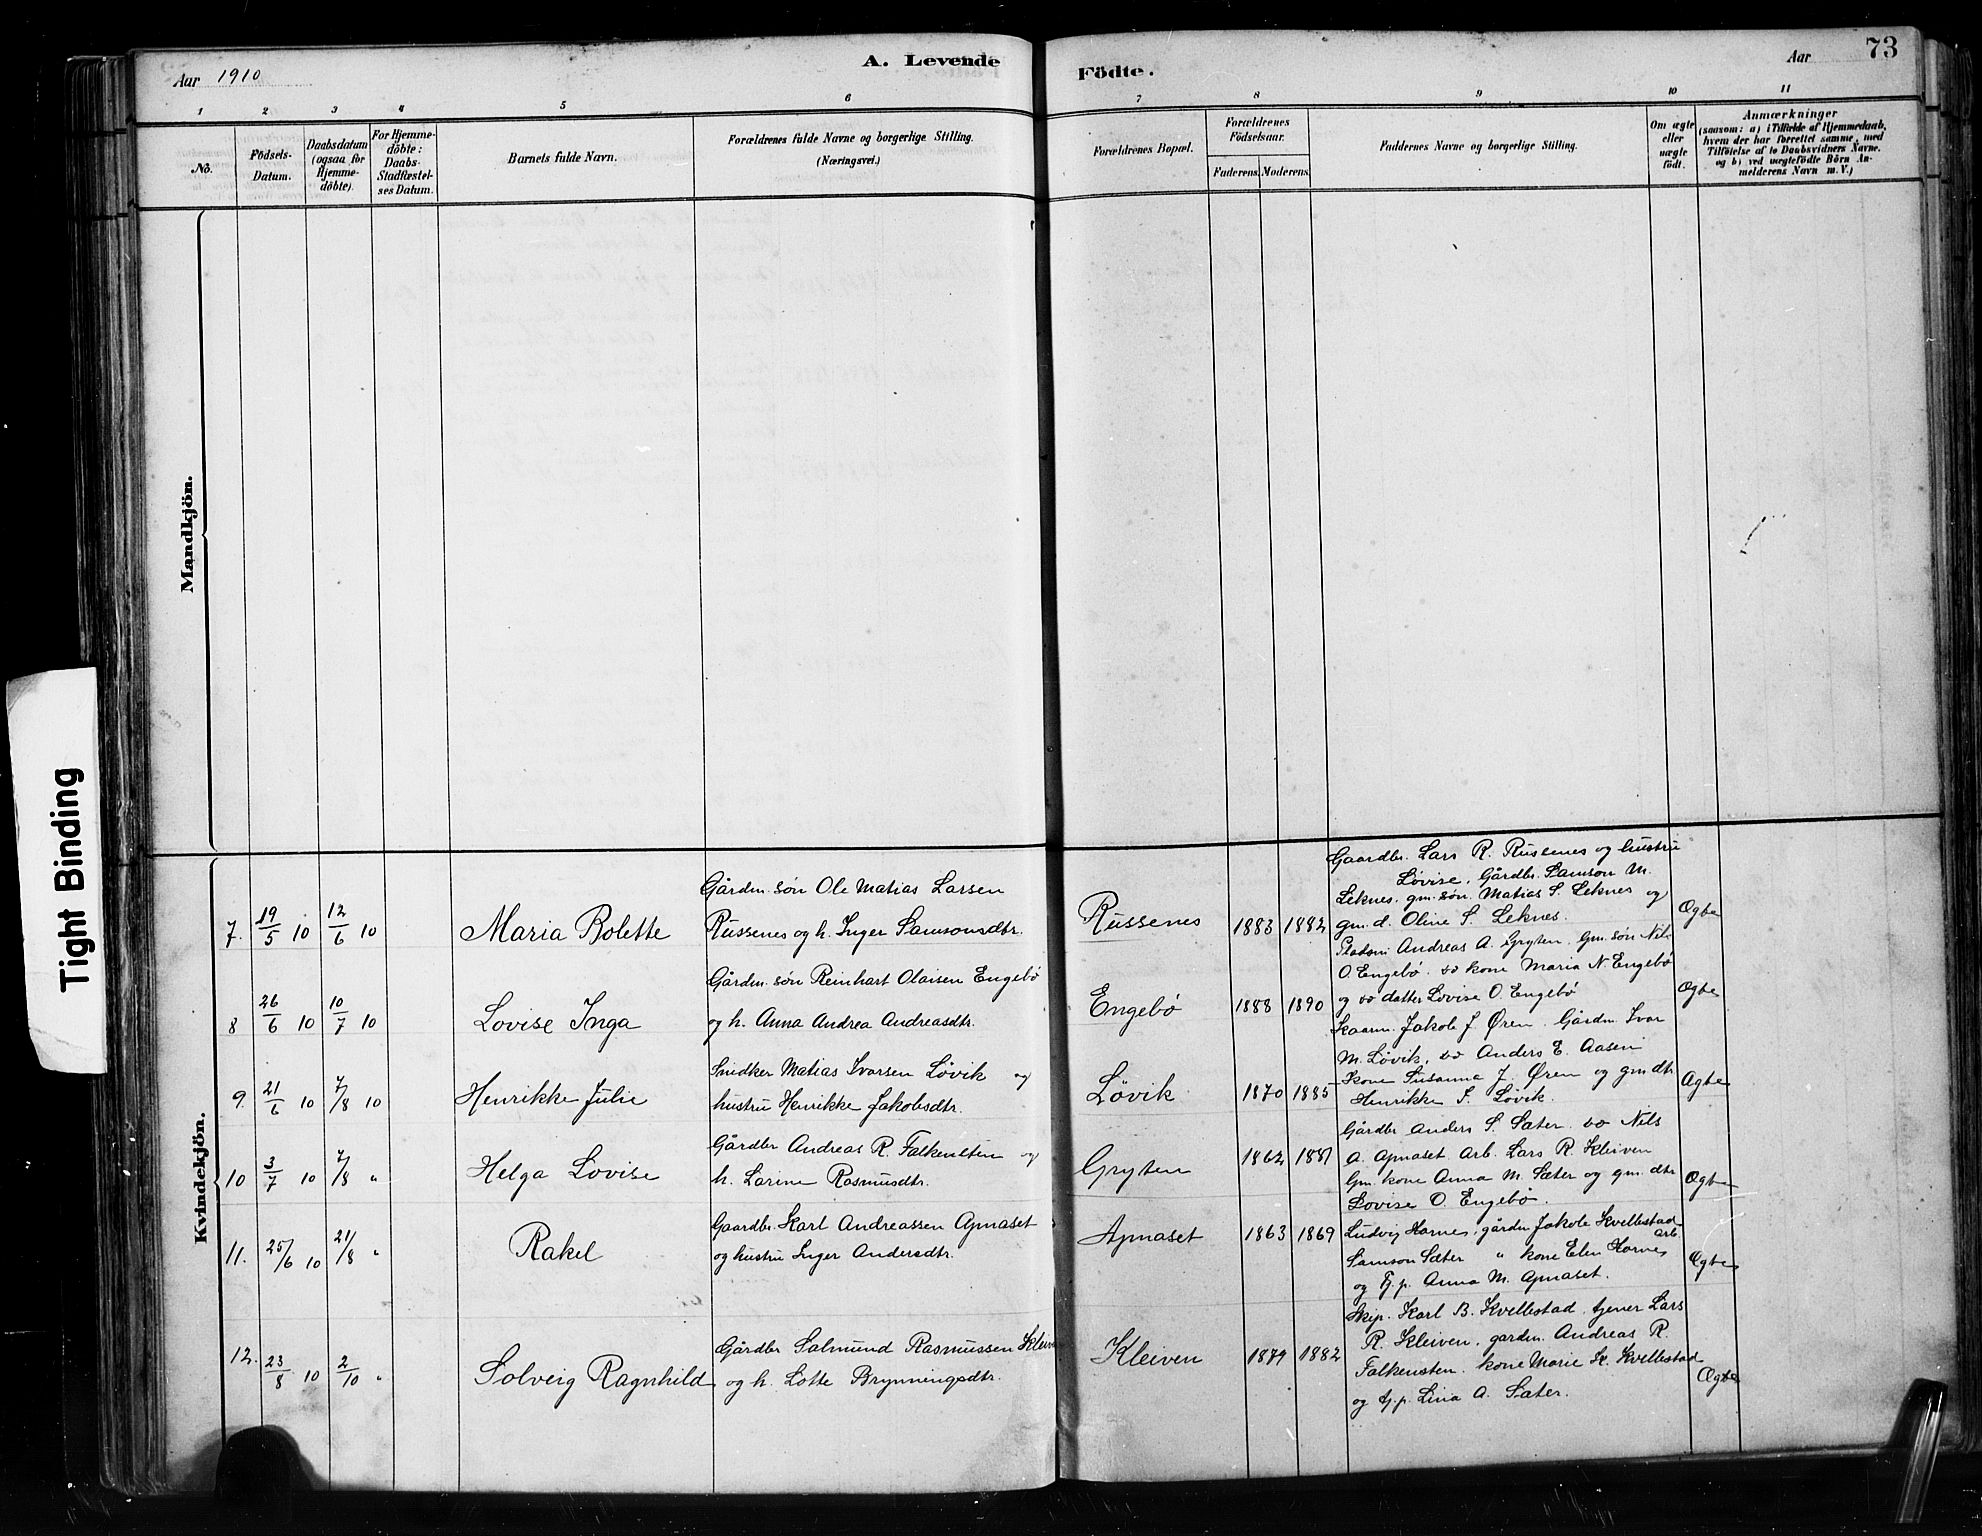 Aar 1910
A. Levende
Födte.
Aar
73
1 2 3 4 5 6 7 8 9 10 11
No.
Födsels-
Datum.
Daabsdatum
(ogsaa for
Hjemme-
döbte).
For Hjemme-
döbte:
Daabs-
Stadfæstel-
ses Datum.
Barnets fulde Navn.
Forældrenes fulde Navne og borgerlige Stilling.
(Næringsvei.)
Forældrenes Bopæl.
Forældrenes
Födselsaar.
Faderens. Moderens.
Faddernes Navne og borgerlige Stilling.
Om ægte
eller
uægte
födt.
Anmærkninger
(saasom: a) i Tilfælde af Hjemmedaab,
hvem der har forrettet samme, med
Tilföielse af to Daabsvidners Navne.
og b) ved uægtefödte Börn An-
melderens Navn m. V.)
Mandkjön.
Kvindekjön.
Tight Binding
7. 19/5 10 12/6 10
Maria Bolette
Gårdm. søn Ole Matias Larsen
Russenes og h. Inger Samsonsdtr.
Russenes
1883 1882
Gaardbr. Lars R. Russenes og hustru
Løvise, Gårdbr. Samson M.
Leknes, gm. søn. Matias S. Leknes og
gm. d. Oline S. Leknes.
Ægte
8 26/6 10 10/7 10
Lovise Inga
Gårdm. søn Reinhart Olaisen Engebø
og h. Anna Andrea Andreasdtr.
Engebø
1888 1890
Pladsm Andreas A. Gryten, Gm. søn Nils
O. Engebø. do kone Maria N. Engebø
og do datter Lovise O. Engebø
Ægte
9. 21/6 10 7/8 10
Henrikke Julie
Snedker Matias Ivarsen Løvik og
hustru Henrikke Jakobsdtr.
Løvik
1870 1885
Kaarm. Jakob J. Øren. Gårdm. Ivar
M. Løvik, do Anders E. Aasen
Kone Susanna J. Øren og gm dtr
Henrikke S. Løvik.
Ægte
10 3/7 10 7/8 "
Helga Lovise
Gårdbr Andreas R. Falkensten og
h. Larine Rasmusdtr.
Gryten
1862 1881
Gårdbr Anders S. Sæter. do Nils
A. Apnaset Arb. Lars R. Kleiven
Gm. kone Anna M. Sæter og gm. dtr
Lovise O. Engebø.
Ægte
11. 25/6 10 21/8 "
Rakel
Gaardbr. Karl Andreassen Apnaset
og hustru Inger Andersdtr.
Apnaset
1863 1869
Ludvig Hornes, gårdm Jakob Kvellestad
arb.
Samson Sæter " kone Elen Hornes
og Tj. p. Anna M. Apnaset.
Ægte
12. 23/8 10 2/10 "
Solveig Ragnhild
Gårdbr Salmund Rasmussen Kleiven
og h. Lotte Brynningsdtr.
Kleiven
1879 1882
Skip. Karl B. Kvellestad, tjener Lars
R. Kleiven, gardm. Andreas R.
Falkensten. kone Marie K. Kvellestad
og tj. p. Lina A. Sæter.
Ægte